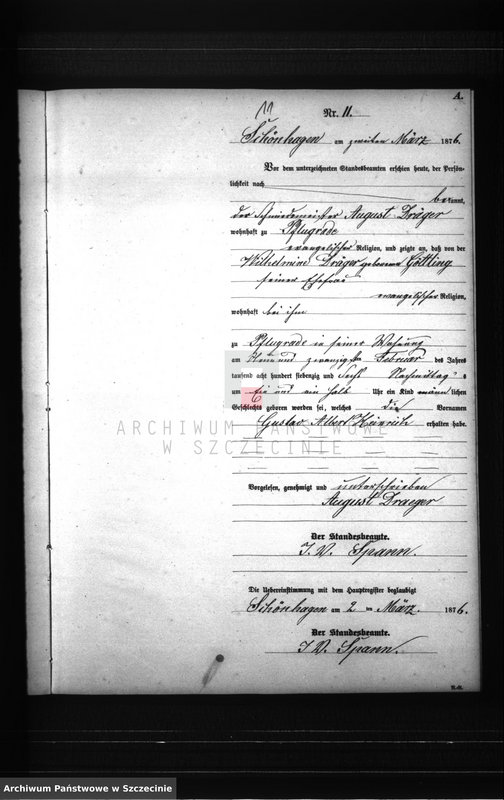 A.
11
Nr. 11.
Schönhagen am zweiten März 1876.
Vor dem unterzeichneten Standesbeamten erschien heute, der Persön-
lichkeit nach
bekannt,
der Schmiedemeister August Dräger
wohnhaft zu Pflugrade
evangelischer Religion, und zeigte an, daß von der
Wilhelmine Dräger geborene Göttling
seiner Ehefrau
evangelischer Religion,
wohnhaft bei ihm
zu Pflugrade in seiner Wohnung
am und zwanzigsten Februar des Jahres
tausend acht hundert siebenzig und sechs Nachmittags
um und ein halb Uhr ein Kind männlichen
Geschlechts geboren worden sei, welches die Vornamen
Gustav Albert Heinrich erhalten habe.
ARCHIWUM PAŃSTWOWE
W SZCZECINIE
Vorgelesen, genehmigt und unterschrieben
August Draeger
Der Standesbeamte.
I. V. Spann.
Die Uebereinstimmung mit dem Hauptregister beglaubigt
Schönhagen am 2 ten März. 1876.
Der Standesbeamte.
I. V. Spann.
Archiwum Państwowe w Szczecinie